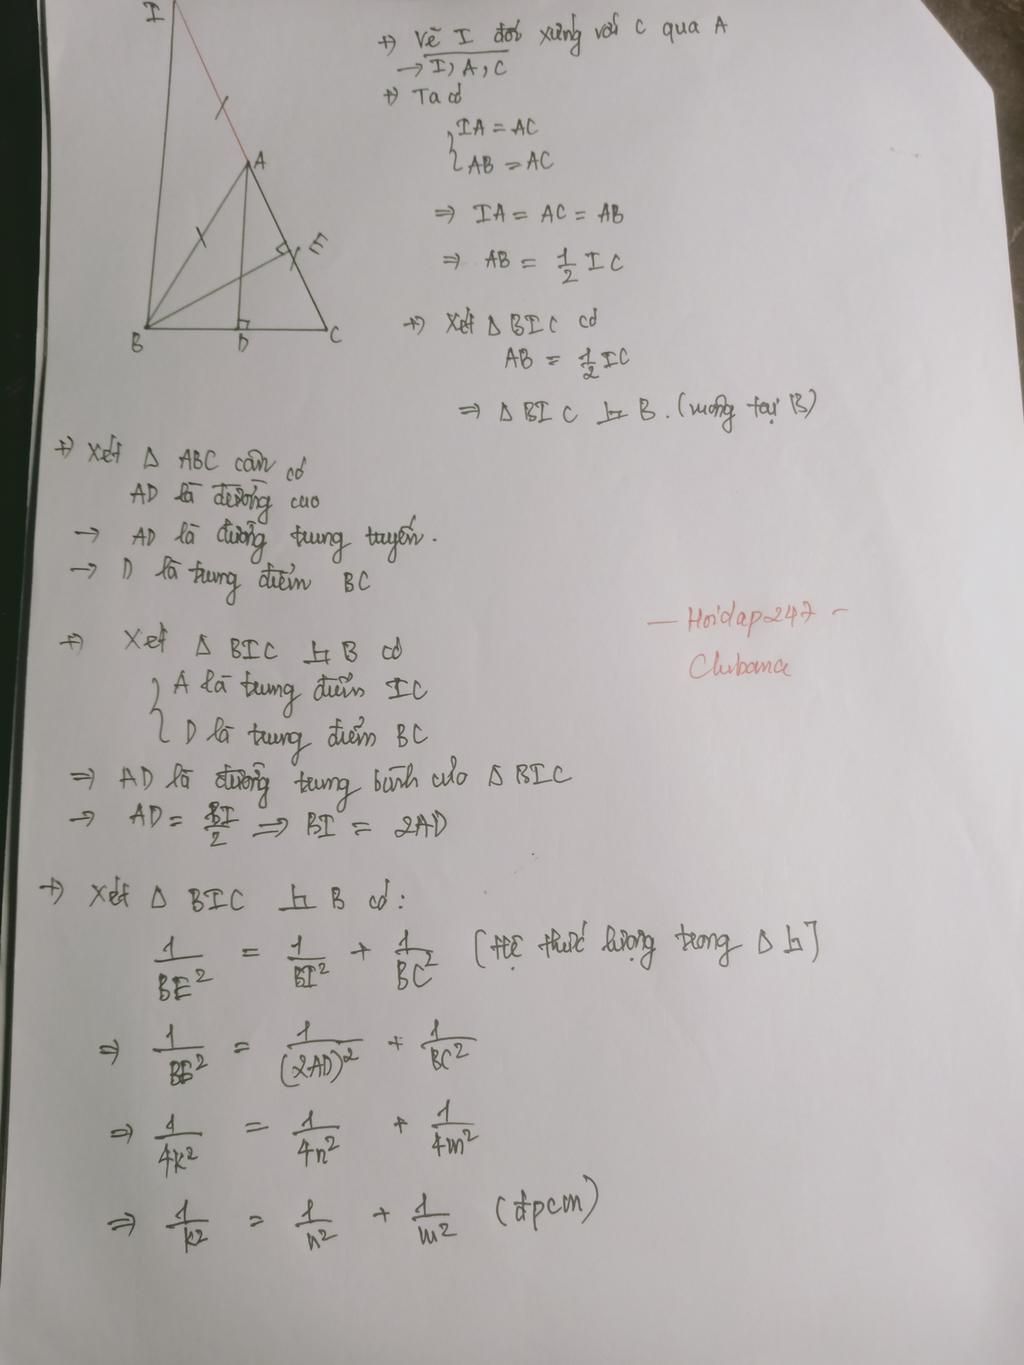 I
A
E
B
D
C
+) Vẽ I đối xứng với C qua A
→ I, A, C
+) Ta có
IA = AC
AB = AC
⇒ IA = AC = AB
⇒ AB = 1/2 IC
+) Xét Δ BIC có
AB = 1/2 IC
⇒ Δ BIC ⊥ B. (vuông tại B)
+) Xét Δ ABC cân có
AD là đường cao
→ AD là đường trung tuyến.
→ D là trung điểm BC
— Hoidap247 —
+) Xét Δ BIC ⊥ B có
A là trung điểm IC
D là trung điểm BC
⇒ AD là đường trung bình của Δ BIC
→ AD = BI/2 ⇒ BI = 2AD
+) Xét Δ BIC ⊥ B có:
1/BE² = 1/BI² + 1/BC² [Hệ thức lượng trong Δ ⊥]
⇒ 1/BE² = 1/(2AD)² + 1/BC²
⇒ 1/4k² = 1/4n² + 1/4m²
⇒ 1/k² = 1/n² + 1/m² (đpcm)